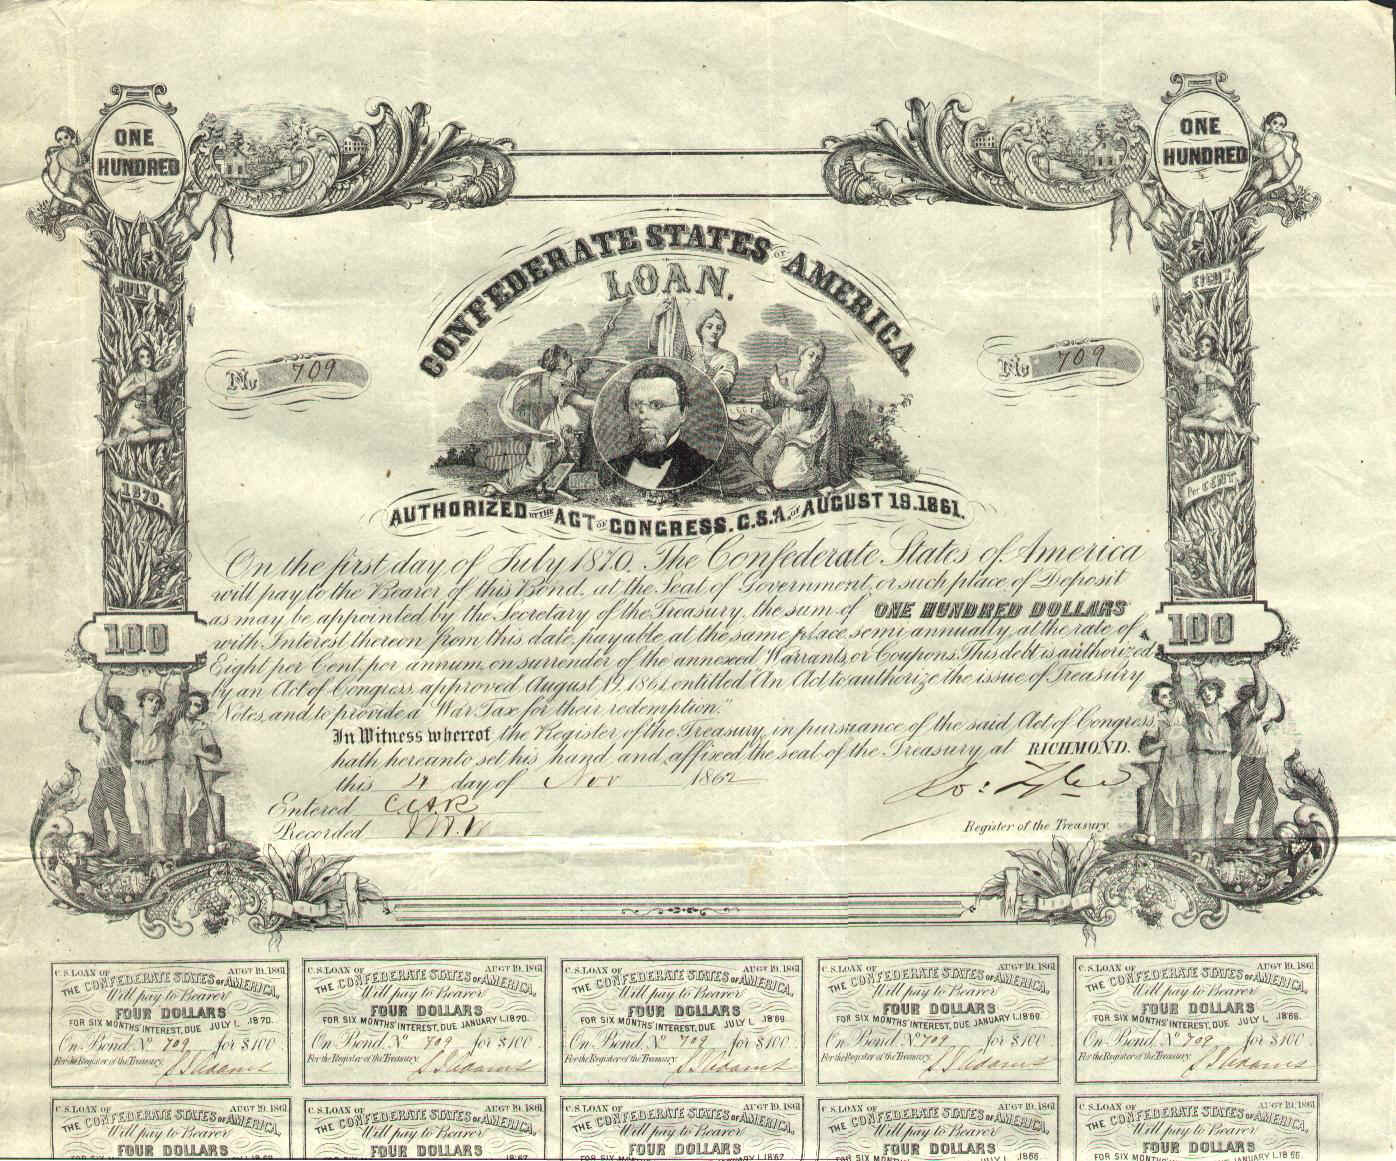 ONE HUNDRED
ONE HUNDRED
CONFEDERATE STATES OF AMERICA
LOAN.
JULY 1
EIGHT
No 709
No 709
1870.
Per CENT.
AUTHORIZED BY THE ACT OF CONGRESS. C.S.A. OF AUGUST 19.1861.
On the first day of July 1870. The Confederate States of America
will pay to the Bearer of this Bond, at the Seat of Government, or such place of Deposit
as may be appointed by the Secretary of the Treasury, the sum of ONE HUNDRED DOLLARS
with Interest thereon from this date, payable at the same place, semi-annually, at the rate of
Eight per Cent, per annum, on surrender of the annexed Warrants, or Coupons. This debt is authorized
by an Act of Congress, approved August 19, 1861, entitled "An Act, to authorize the issue of Treasury
Notes, and to provide a War Tax for their redemption."
100
100
In Witness whereof, the Register of the Treasury, in pursuance of the said Act of Congress
hath hereunto set his hand and affixed the seal of the Treasury, at RICHMOND.
this 4 day of Nov 1862
Entered
Recorded
Register of the Treasury.
C.S. LOAN OF AUGT 19, 1861
THE CONFEDERATE STATES OF AMERICA,
Will pay to Bearer
FOUR DOLLARS
FOR SIX MONTHS' INTEREST, DUE JULY 1, 1870.
On Bond No 709 for $100
For the Register of the Treasury,
C.S. LOAN OF AUGT 19, 1861
THE CONFEDERATE STATES OF AMERICA,
Will pay to Bearer
FOUR DOLLARS
FOR SIX MONTHS' INTEREST, DUE JANUARY 1, 1870.
On Bond No 709 for $100
For the Register of the Treasury,
C.S. LOAN OF AUGT 19, 1861
THE CONFEDERATE STATES OF AMERICA,
Will pay to Bearer
FOUR DOLLARS
FOR SIX MONTHS' INTEREST, DUE JULY 1, 1869.
On Bond No 709 for $100
For the Register of the Treasury,
C.S. LOAN OF AUGT 19, 1861
THE CONFEDERATE STATES OF AMERICA,
Will pay to Bearer
FOUR DOLLARS
FOR SIX MONTHS' INTEREST, DUE JANUARY 1, 1869.
On Bond No 709 for $100
For the Register of the Treasury,
C.S. LOAN OF AUGT 19, 1861
THE CONFEDERATE STATES OF AMERICA,
Will pay to Bearer
FOUR DOLLARS
FOR SIX MONTHS' INTEREST, DUE JULY 1, 1868.
On Bond No 709 for $100
For the Register of the Treasury,
C.S. LOAN OF AUGT 19, 1861
THE CONFEDERATE STATES OF AMERICA,
Will pay to Bearer
FOUR DOLLARS
C.S. LOAN OF AUGT 19, 1861
THE CONFEDERATE STATES OF AMERICA,
Will pay to Bearer
FOUR DOLLARS
C.S. LOAN OF AUGT 19, 1861
THE CONFEDERATE STATES OF AMERICA,
Will pay to Bearer
FOUR DOLLARS
C.S. LOAN OF AUGT 19, 1861
THE CONFEDERATE STATES OF AMERICA,
Will pay to Bearer
FOUR DOLLARS
C.S. LOAN OF AUGT 19, 1861
THE CONFEDERATE STATES OF AMERICA,
Will pay to Bearer
FOUR DOLLARS